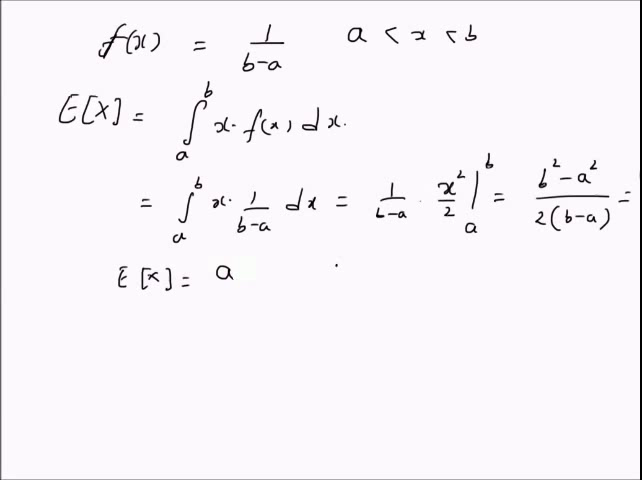 f(x) = 1/(b-a) a < x < b
E[X] = ∫_a^b x. f(x) dx.
= ∫_a^b x. 1/(b-a) dx = 1/(b-a) . x²/2 |_a^b = (b² - a²)/(2(b-a)) =
E[x] = a